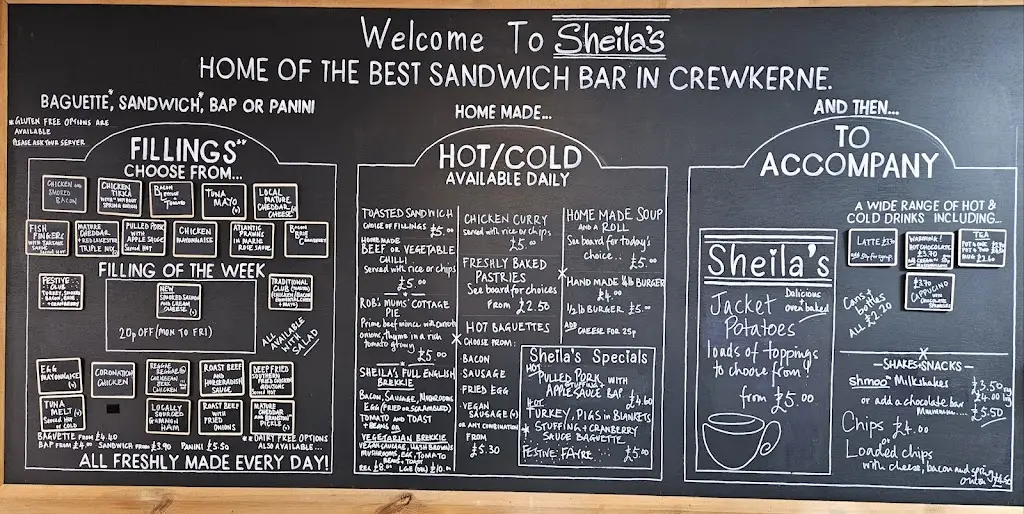 Welcome To Sheila's
HOME OF THE BEST SANDWICH BAR IN CREWKERNE.
BAGUETTE*, SANDWICH*, BAP OR PANINI
*GLUTEN FREE OPTIONS ARE
AVAILABLE
PLEASE ASK YOUR SERVER
FILLINGS**
CHOOSE FROM...
CHICKEN AND
SMOKED
BACON
CHICKEN
TIKKA
WITH/WITHOUT
SPRING ONION
BACON
LETTUCE +
TOMATO
TUNA
MAYO (*)
LOCAL
MATURE
CHEDDAR
CHEESE
FISH
FINGERS
WITH TARTARE
SAUCE
SERVED HOT
MATURE
CHEDDAR
+ RED LEICESTER
TRIPLE MIX
PULLED PORK
WITH APPLE
SAUCE
SERVED HOT
CHICKEN
MAYONNAISE
ATLANTIC
PRAWNS
IN MARIE
ROSE SAUCE
BACON
BRIE
CRANBERRY
FILLING OF THE WEEK
FESTIVE
CLUB
TURKEY, STUFFING,
BACON, BRIE
+ CRANBERRY
NEW
SMOKED SALMON
AND CREAM
CHEESE (*)
20p OFF (MON TO FRI)
TRADITIONAL
CLUB
CHICKEN/BACON
MAYO
ALL
AVAILABLE
WITH
SALAD
EGG
MAYONNAISE
(*)
CORONATION
CHICKEN
REGGAE
REGGAE
CARIBBEAN
CHICKEN
ROAST BEEF
AND
HORSERADISH
SAUCE
DEEP FRIED
SOUTHERN
FRIED CHICKEN
GOUJONS
HOT
TUNA
MELT (*)
SERVED HOT
OR COLD
LOCALLY
SOURCED
GAMMON
HAM
ROAST BEEF
WITH
FRIED
ONIONS
MATURE
CHEDDAR
AND BRANSTON
PICKLE
BAGUETTE FROM £4.40
BAP FROM £4.00 SANDWICH FROM £3.90 PANINI £5.50
**DAIRY FREE OPTIONS
ALSO AVAILABLE...
ALL FRESHLY MADE EVERY DAY!
HOME MADE...
HOT/COLD
AVAILABLE DAILY
TOASTED SANDWICH
CHOICE OF FILLINGS £5.00
HOME MADE
BEEF OR VEGETABLE
CHILLI
Served with rice or chips
£5.00
ROB'S MUMS' COTTAGE
PIE
Prime beef mince with carrots
onions, thyme in a rich
tomato gravy
£5.00
SHEILA'S FULL ENGLISH
BREKKIE
BACON, SAUSAGE, MUSHROOMS
EGG (FRIED OR SCRAMBLED)
TOMATO AND TOAST
+ BEANS OR
VEGETARIAN BREKKIE
VEGAN SAUSAGE, HASH BROWNS
MUSHROOMS, EGG, TOMATO
BEANS + TOAST
REG £8.00 LGE £10.00
CHICKEN CURRY
served with rice or chips
£5.00
FRESHLY BAKED
PASTRIES
See board for choices
FROM £2.50
HOT BAGUETTES
CHOOSE FROM:
BACON
SAUSAGE
FRIED EGG
VEGAN
SAUSAGE (*)
OR ANY COMBINATION
FROM
£5.30
HOME MADE SOUP
AND A ROLL
See board for today's
choice..
£5.00
HAND MADE 1/4lb BURGER
£4.00
1/2lb BURGER £5.00
ADD CHEESE FOR 25p
Sheila's Specials
HOT
PULLED PORK WITH
STUFFING +
APPLE SAUCE BAP
£4.60
HOT
TURKEY, PIGS IN BLANKETS
* STUFFING + CRANBERRY
SAUCE BAGUETTE
FESTIVE FAYRE... £5.00
AND THEN...
TO
ACCOMPANY
A WIDE RANGE OF HOT &
COLD DRINKS INCLUDING...
LATTE
WARMING!
HOT CHOCOLATE
£3.70
TEA
£3.70
CAPPUCINO
WITH
CHOCOLATE
SPRINKLES
Cans +
bottles
ALL £2.20
Sheila's
Jacket
Potatoes
Delicious
oven baked
loads of toppings
to choose from!
from £5.00
SHAKES + SNACKS
shmoo Milkshakes £3.50 reg
£4.00 lrg
or add a chocolate bar
£5.50
Chips £4.00
or
Loaded chips
with cheese, bacon and spring
onion £4.50